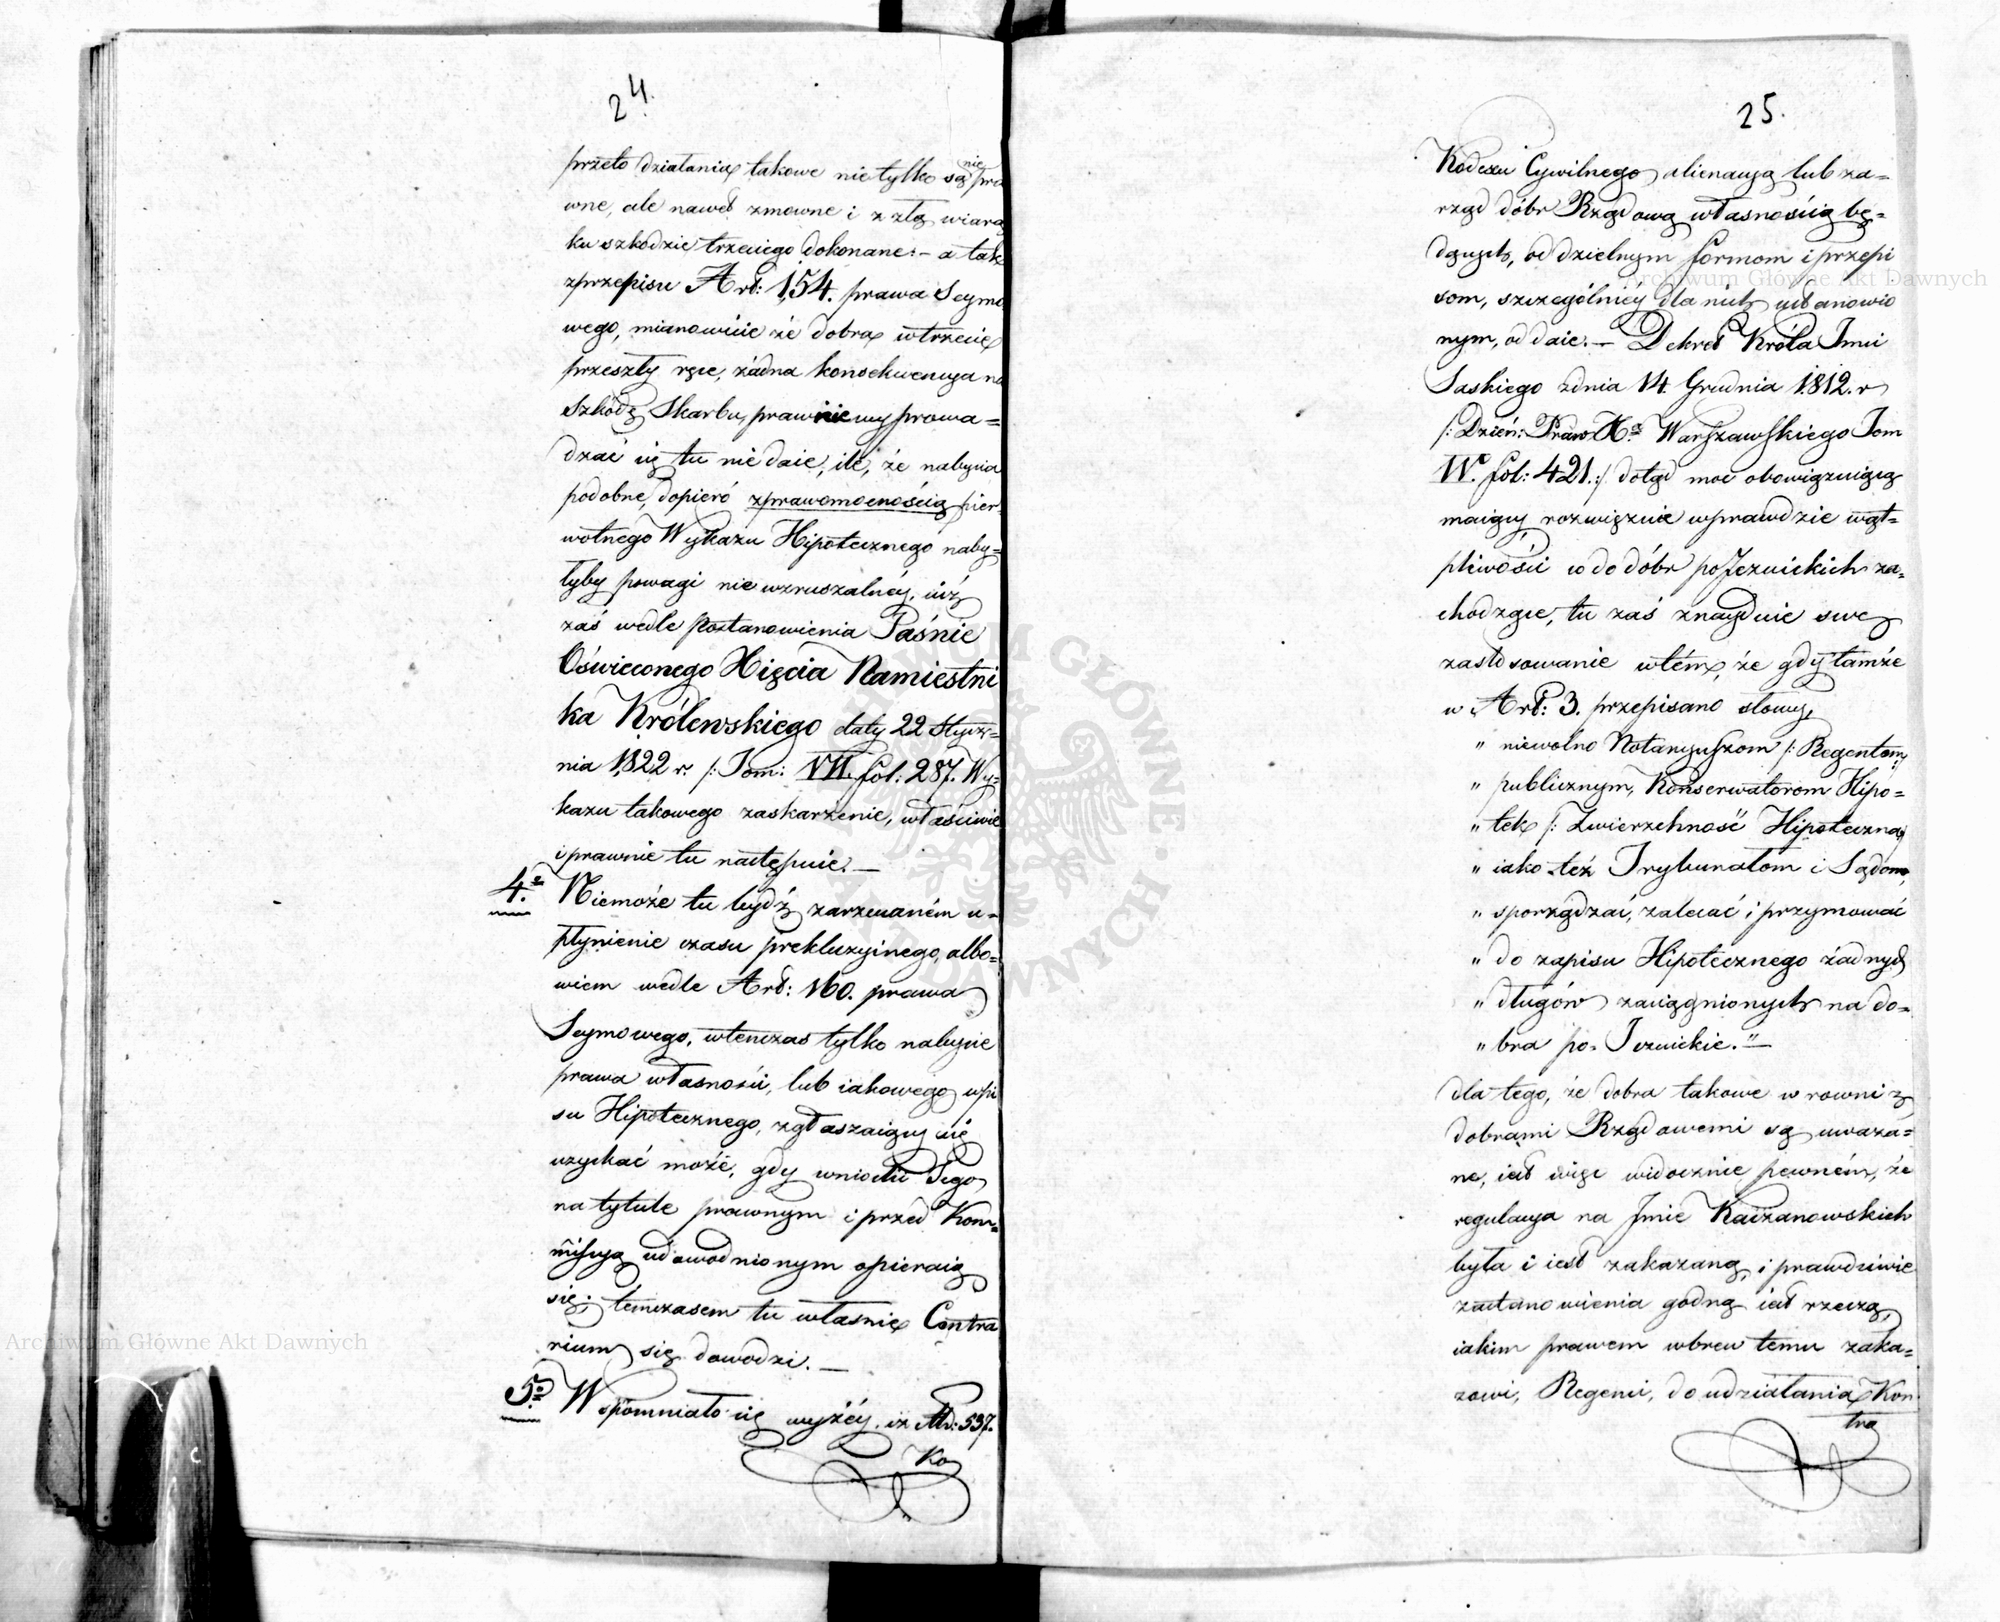 24.
przeto działania takowe nie tylko są nie pra
wne, ale nawet zmowne i z złą wiarą
ku szkodzie trzeciego dokonane: – a tak
z przepisu Art: 154. prawa Seymo
wego, mianowicie że dobra w trzecie
przeszły ręce, żadna konsekwencya na
szkodę Skarbu, prawnie wyprowa=
dzać się tu nie daie, ile, że nabycia
podobne, dopiero z prawomocnością pier
wotnego Wykazu Hipotecznego naby=
łyby powagi nie wzruszalnéy, iuż
zaś wedle postanowienia Jaśnie
Oświeconego Xięcia Namiestni
ka Królewskiego daty 22 Stycz=
nia 1822 r. /: Tom: VII. fol: 287. Wy=
kazu takowego zaskarżenie, właściwie
i prawnie tu następuie. –
4.º Niemoże tu bydź zarzucaném u=
płynienie czasu prekluzyinego, albo=
wiem wedle Art: 160. prawa
Seymowego, wtenczas tylko nabycie
prawa własności, lub iakowego wpi
su Hipotecznego, zgłaszaiący się
uzyskać może, gdy wniosek Jego
na tytule prawnym i przed Kom=
missyą udowodnionym opieraią
się; tymczasem tu własnie Contra
rium się dowodzi. –
5.º Wspomniało się wyżéy, iż Art: 537.
Ko
25.
Kodexu Cywilnego alienacyą lub za=
rząd dóbr Rządową własnością bę=
dących, oddzielnym formom i przepi
som, szczególniéy dla nich ustanowio
nym, oddaie. – Dekret Króla Jmci
Saskiego z dnia 14 Grudnia 1812. r
/: Dzień: Praw X.a Warszawskiego Tom
IV. fol: 421. :/ dotąd moc obowiązuiącą
maiący rozwiązuie wprawdzie wąt=
pliwości co do dóbr poJezuickich za=
chodzące, tu zaś znayduie swe
zastosowanie w tém, że gdy tamże
w Art: 3. przepisano słowy
„ niewolno Notaryuszom /: Regentom :/
„ publicznym, Konserwatorom Hipo=
„ tek /: Zwierzchność Hipoteczna :/
„ iako też Trybunałom i Sądom,
„ sporządzać, zalecać i przymować
„ do zapisu Hipotecznego żadnych
„ długów zaciągnionych na do=
„ bra po=Jezuickie.” –
dla tego, że dobra takowe w rowni z
dobrami Rządowemi są uważa=
ne, iest więc widocznie pewném, że
regulacya na Jmie Kaczanowskich
była i iest zakazaną, i prawdziwie
zastanowienia godną iest rzeczą,
iakim prawem wbrew temu zaka=
zowi, Regenci, do udziałania Kon
tra